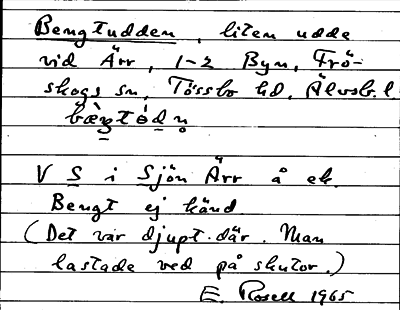 Bengtudden, liten udde
vid Ärr, 1-2 Byn, Frö-
skogs sn, Tössbo hd, Älvsb. l.
bæ̀ŋtódn̥
V S i Sjön Ärr å ek.
Bengt ej känd
(Det var djupt där. Man
lastade ved på skutor.)
E. Rosell 1965